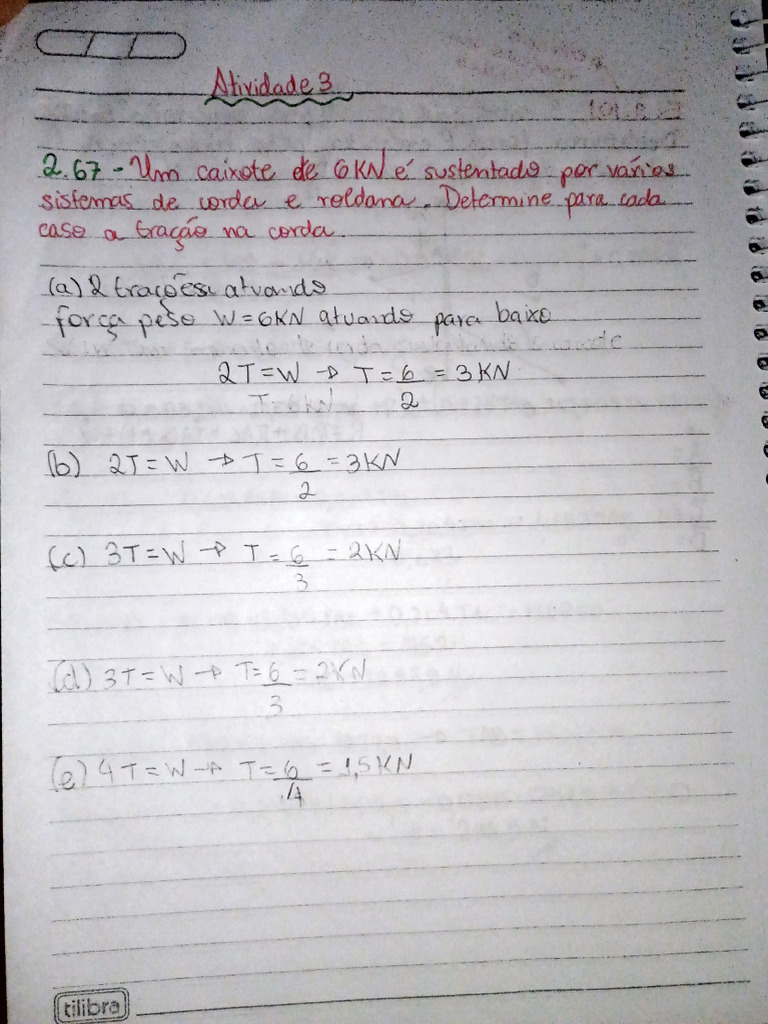 Atividade 3
2.67 - Um caixote de 6KN é sustentado por vários
sistemas de corda e roldana. Determine para cada
caso a tração na corda.
(a) 2 trações atuando
força peso W=6KN atuando para baixo
2T=W → T=6/2 = 3KN
(b) 2T=W → T=6/2 =3KN
(c) 3T=W → T=6/3 = 2KN
(d) 3T=W → T=6/3 = 2KN
(e) 4T=W → T=6/4 = 1,5KN
tilibra